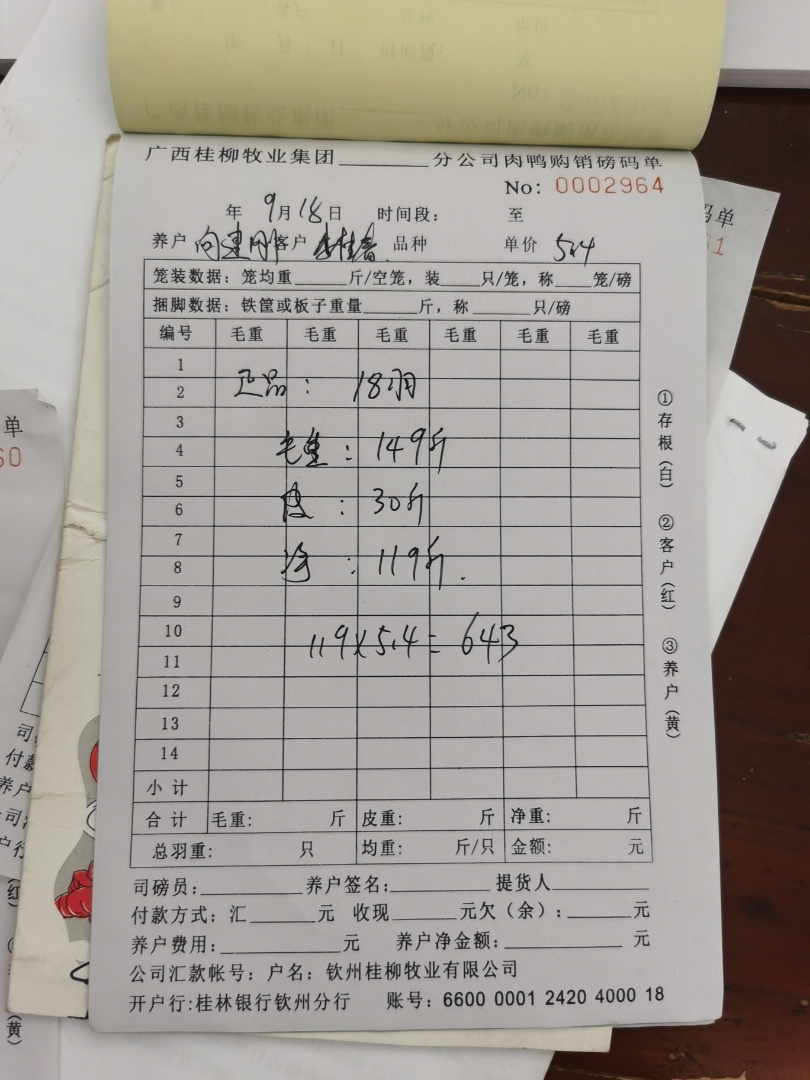 广西桂柳牧业集团________分公司肉鸭购销磅码单
No: 0002964
年 9月18日 时间段: 至
养户 向建刚 客户 李桂春 品种 单价 5.4
笼装数据: 笼均重______斤/空笼, 装____只/笼, 称____笼/磅
捆脚数据: 铁筐或板子重量______斤, 称______只/磅
编号 毛重 毛重 毛重 毛重 毛重 毛重
1
2 正品: 18羽
3
4 毛重: 149斤
5
6 皮: 30斤
7
8 净: 119斤.
9
10 119×5.4=643
11
12
13
14
小计
合计 毛重: 斤 皮重: 斤 净重: 斤
总羽重: 只 均重: 斤/只 金额: 元
司磅员:________ 养户签名:________ 提货人________
付款方式: 汇______元 收现______元欠（余）:______元
养户费用:____________元 养户净金额:____________元
公司汇款帐号: 户名: 钦州桂柳牧业有限公司
开户行:桂林银行钦州分行 账号: 6600 0001 2420 4000 18
①存根（白） ②客户（红） ③养户（黄）
码单
单
60
付款
养户
（红）
（黄）